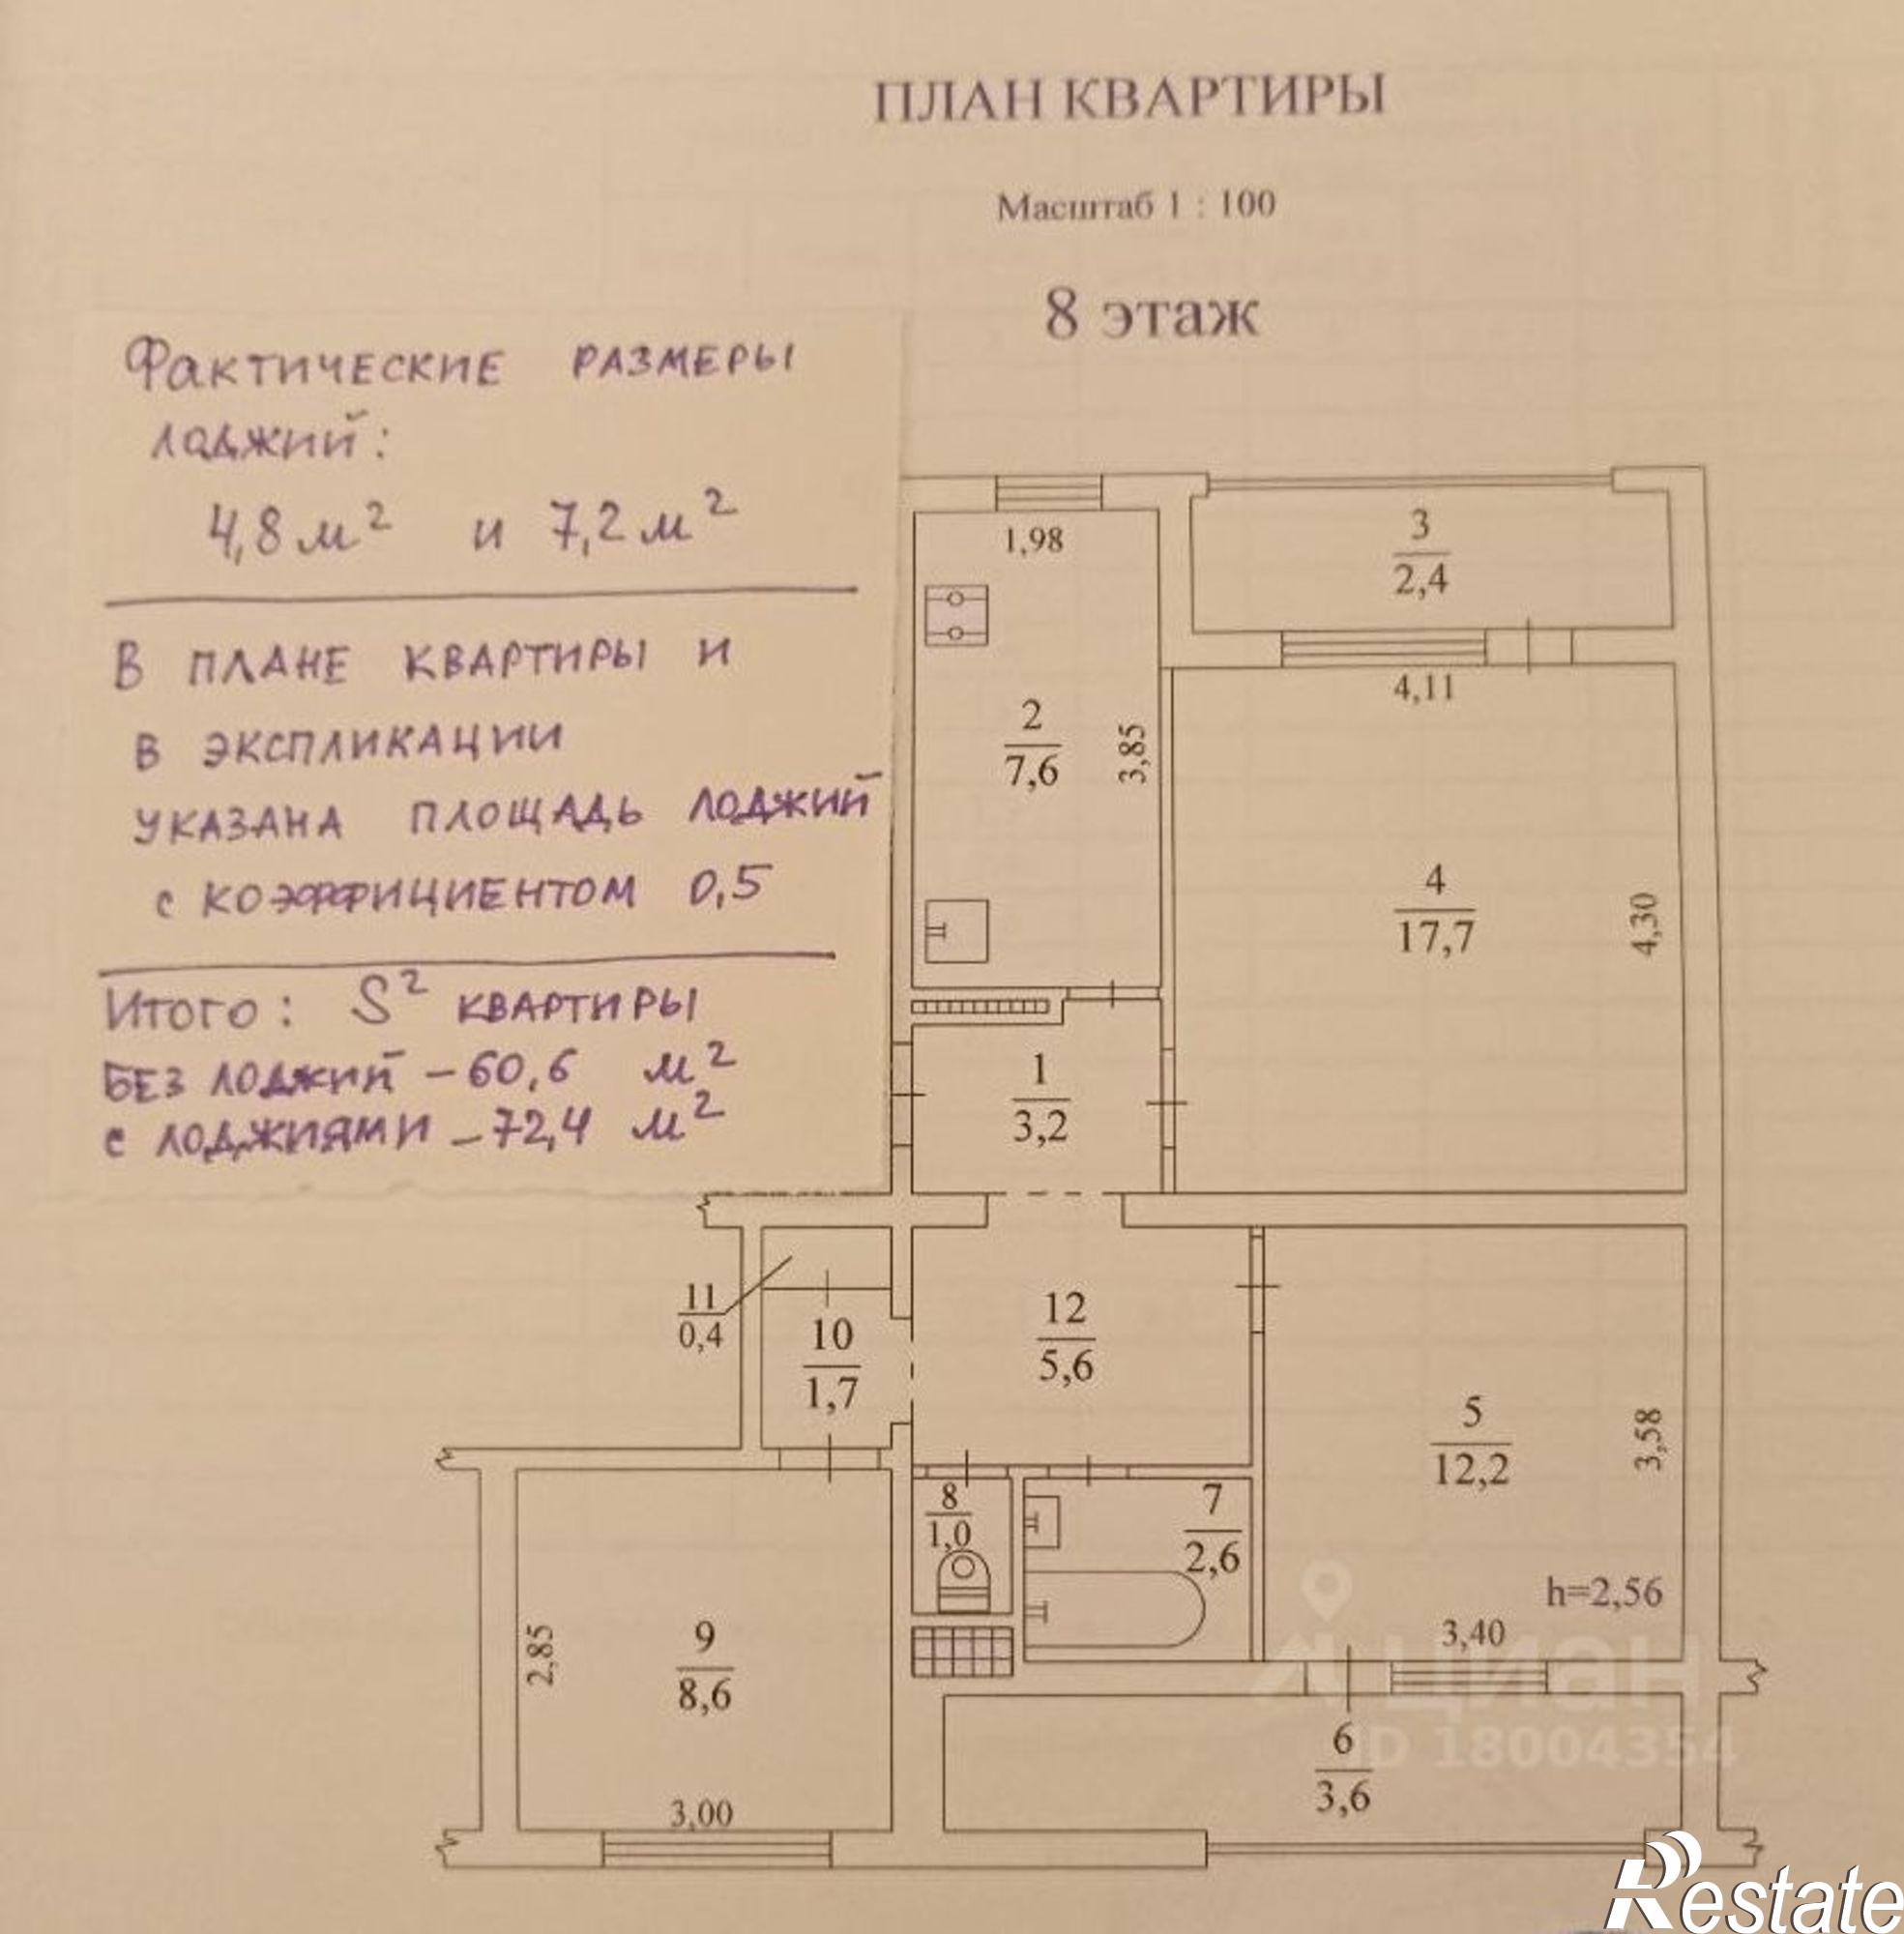 ПЛАН КВАРТИРЫ
Масштаб 1 : 100
8 этаж
Фактические размеры
лоджий:
4,8 м² и 7,2 м²
В плане квартиры и
в экспликации
указана площадь лоджий
с коэффициентом 0,5
Итого: S² квартиры
без лоджий – 60,6 м²
с лоджиями – 72,4 м²
1,98
3
2,4
4,11
2
7,6
3,85
4
17,7
4,30
1
3,2
11
0,4
10
1,7
12
5,6
5
12,2
3,58
8
1,0
7
2,6
h=2,56
3,40
2,85
9
8,6
3,00
6
3,6
ЦИАН
ID 18004354
Restate